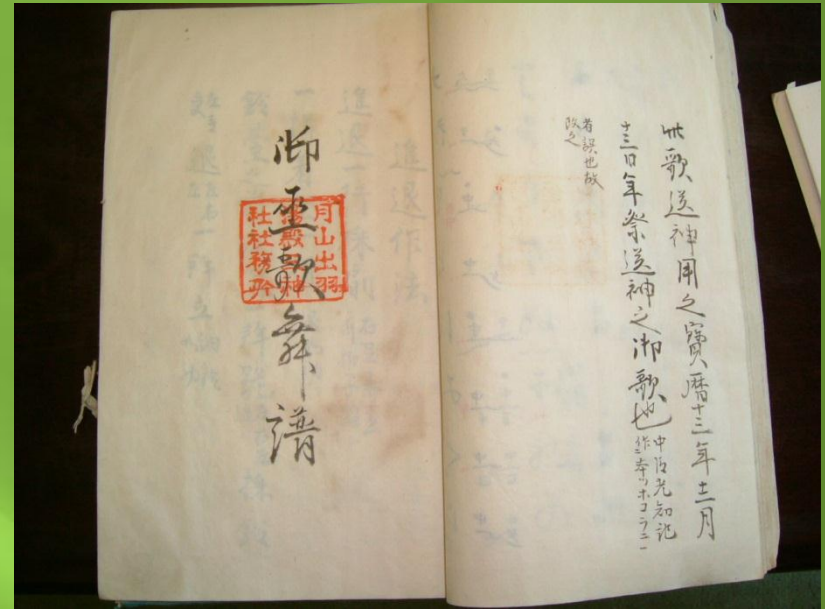 此歌送神用之寶暦十二年十二月
十三日年祭送神之御歌也
中臣光知記
作本ノホコラニ一
者誤也故
改之
御巫歌舞譜
月山出羽
湯殿神
社社務所